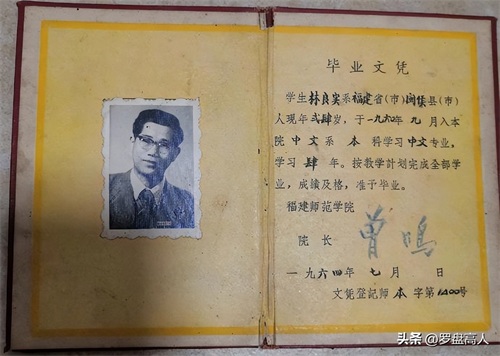 毕业文凭
学生林良实系福建省(市)闽侯县(市)
人现年弍肆岁，于一九六〇年九月入本
院中文系本科学习中文专业，
学习肆年。按教学计划完成全部学
业，成绩及格，准予毕业。
福建师范学院
院长 曾鸣
一九六四年七月 日
文凭登记师本字第1400号
头条 @罗盘高人